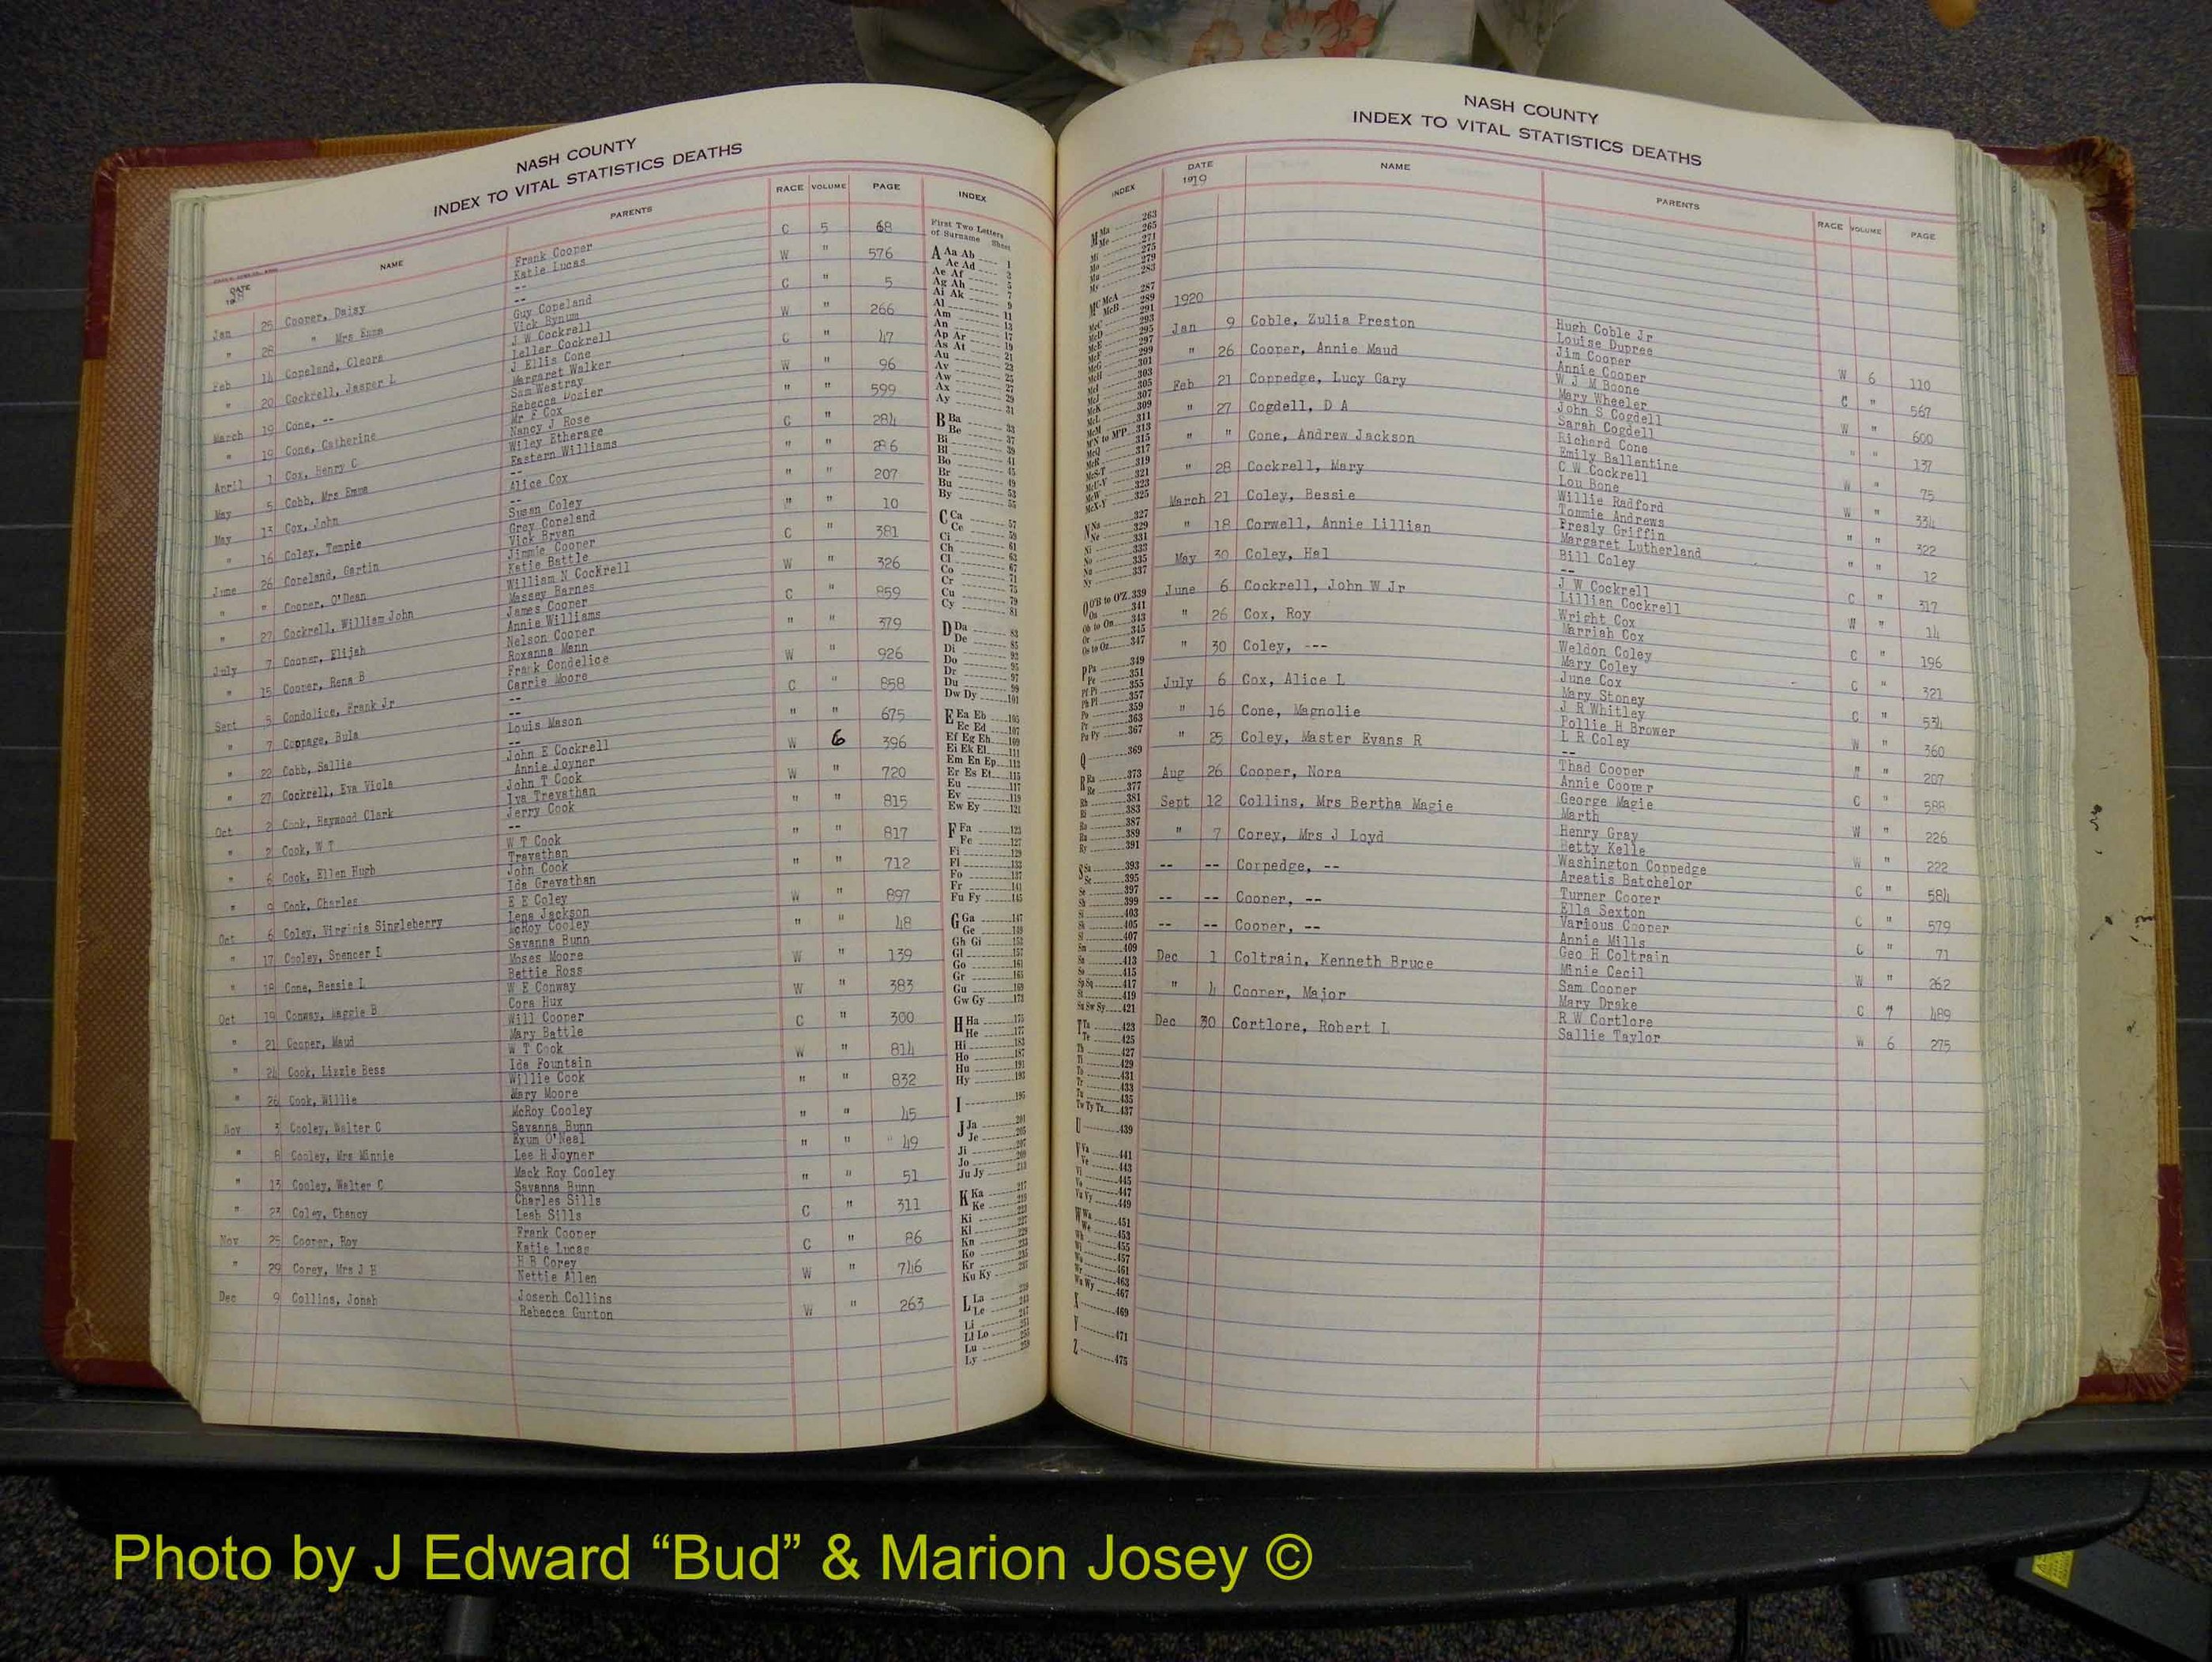 NASH COUNTY
INDEX TO VITAL STATISTICS DEATHS
DATE NAME PARENTS RACE VOLUME PAGE INDEX
Jan 25 Cooper, Daisy Frank Cooper C 5 68
Katie Lucas
" 28 " Mrs Emma -- W " 576
--
Feb 14 Copeland, Cleora Guy Copeland C " 5
Vick Bynum
" 20 Cockrell, Jasper L J W Cockrell W " 266
Teller Cockrell
March 19 Cone, -- J Ellis Cone C " 47
Margaret Walker
" 19 Cone, Catherine Sam Westray W " 96
Rebecca Dozier
April 1 Cox, Henry C Mr F Cox " " 599
Nancy J Rose
May 5 Cobb, Mrs Emma Wiley Etherage C " 284
Eastern Williams
May 13 Cox, John -- " " 286
Alice Cox
" 16 Coley, Tempie -- " " 207
Susan Coley
June 26 Copeland, Gartin Grey Copeland " " 10
Vick Bryan
" " Cooper, O'Dean Jimmie Cooper C " 381
Katie Battle
" 27 Cockrell, William John William N Cockrell W " 326
Massey Barnes
July 7 Cooper, Elijah James Cooper C " 859
Annie Williams
" 15 Cooper, Rena B Nelson Cooper " " 379
Roxanna Mann
Sept 5 Condolice, Frank Jr Frank Condelice W " 926
Carrie Moore
" 7 Coppage, Bula -- C " 858
--
" 22 Cobb, Sallie Louis Mason " " 675
--
" 27 Cockrell, Eva Viola John E Cockrell W 6 396
Annie Joyner
Oct 2 Cook, Haywood Clark John T Cook W " 720
Iva Trevathan
" 2 Cook, W T Jerry Cook " " 815
--
" 6 Cook, Ellen Hugh W T Cook " " 817
Travathan
" 9 Cook, Charles John Cook " " 712
Ida Grevathan
Oct 6 Coley, Virginia Singleberry E E Coley W " 897
Lena Jackson
" 17 Cooley, Spencer L McRoy Cooley " " 48
Savanna Bunn
" 18 Cone, Bessie L Moses Moore W " 139
Bettie Ross
Oct 19 Conway, Maggie B W E Conway W " 383
Cora Hux
" 21 Cooper, Maud Will Cooper C " 300
Mary Battle
" 24 Cook, Lizzie Bess W T Cook W " 814
Ida Fountain
" 26 Cook, Willie Willie Cook " " 832
Mary Moore
Nov 3 Cooley, Walter C McRoy Cooley " " 45
Savanna Bunn
" 8 Cooley, Mrs Minnie Exum O'Neal " " 49
Lee H Joyner
" 13 Cooley, Walter C Mack Roy Cooley " " 51
Savanna Bunn
" 23 Coley, Chancy Charles Sills C " 311
Leah Sills
Nov 25 Cooper, Roy Frank Cooper C " 86
Katie Lucas
" 29 Corey, Mrs J H H B Corey W " 746
Nettie Allen
Dec 9 Collins, Jonah Joseph Collins W " 263
Rebecca Gupton
First Two Letters
of Surname Sheet
A Aa Ab 1
Ac Ad
Ae Af 5
Ag Ah 7
Ai Ak 9
Al 11
Am 13
An 17
Ap Ar 19
As At 21
Au 23
Av 25
Aw
Ax 29
Ay 31
B Ba 33
Be 37
Bi 39
Bl 41
Bo 45
Br 49
Bu 53
By 55
C Ca 57
Ce 59
Ci 61
Ch 63
Cl 67
Co 71
Cr 75
Cu 79
Cy 81
D Da 83
De 85
Di 93
Do 95
Dr 97
Du 99
Dw Dy 101
E Ea Eb 105
Ec Ed 107
Ef Eg Eh 109
Ei Ek El 111
Em En Ep 113
Er Es Et 115
Eu 117
Ev 119
Ew Ey 121
F Fa 123
Fe 127
Fi 129
Fl 133
Fo 137
Fr 141
Fu Fy 145
G Ga 147
Ge 149
Gh Gi 153
Gl 157
Go 161
Gr 165
Gu 169
Gw Gy 173
H Ha 175
He 177
Hi 183
Ho 187
Hu 191
Hy 193
I 195
J Ja 201
Je 205
Ji 207
Jo 209
Ju Jy 213
K Ka 217
Ke 219
Ki
Kl
Kn
Ko
Kr
Ku Ky 237
L La 239
Le 243
Li 247
Ll Lo
Lu
Ly 259
NASH COUNTY
INDEX TO VITAL STATISTICS DEATHS
INDEX DATE NAME PARENTS RACE VOLUME PAGE
1919
M Ma 263
Me 265
Mi 271
Mo 275
Mu 279
My 283
Mc McA 287
McB 289
McC 291
McD 293
McE 295
McF 297
McG 299
McH 301
McI 303
McJ 305
McK 307
McL 309
McM 311
M'N to M'P 313
McQ 315
McR 317
McS-T 319
McU-V 321
McW 323
McX-Y 325
N Na 327
Ne 329
Ni 331
No 333
Nu 335
Ny 337
O O'B to O'Z 339
Oa 341
Ob to On 343
Or 345
Os to Oz 347
P Pa 349
Pe 351
Pf Pi 355
Ph Pl 357
Po 359
Pr 363
Pu Py 367
Q 369
R Ra 373
Re 377
Rh 381
Ri 383
Ro 387
Ru 389
Ry 391
S Sa 393
Sc 395
Se 397
Sh 399
Si 403
Sk 405
Sl 407
Sm 409
Sn 413
So 415
Sp Sq 417
St 419
Su Sw Sy 421
T Ta 423
Te 425
Th 427
Ti 429
To 431
Tr 433
Tu 435
Tw Ty Tz 437
U 439
V Va 441
Ve 443
Vi 445
Vo 447
Vu Vy 449
W Wa 451
We 453
Wh 455
Wi 457
Wo 461
Wr 463
Wu Wy 467
X 469
Y 471
Z 475
1920
Jan 9 Coble, Zulia Preston Hugh Coble Jr W 6 110
Louise Dupree
" 26 Cooper, Annie Maud Jim Cooper C " 567
Annie Cooper
Feb 21 Coppedge, Lucy Gary W J M Boone W " 600
Mary Wheeler
" 27 Cogdell, D A John S Cogdell " " 137
Sarah Cogdell
" " Cone, Andrew Jackson Richard Cone W " 75
Emily Ballentine
" 28 Cockrell, Mary C W Cockrell W " 334
Lou Bone
March 21 Coley, Bessie Willie Radford " " 322
Tommie Andrews
" 18 Corwell, Annie Lillian Presly Griffin " " 12
Margaret Lutherland
May 30 Coley, Hal Bill Coley C " 317
--
June 6 Cockrell, John W Jr J W Cockrell W " 14
Lillian Cockrell
" 26 Cox, Roy Wright Cox C " 196
Marriah Cox
" 30 Coley, --- Weldon Coley C " 321
Mary Coley
July 6 Cox, Alice L June Cox C " 534
Mary Stoney
" 16 Cone, Magnolie J R Whitley W " 360
Pollie H Brower
" 25 Coley, Master Evans R L R Coley " " 207
--
Aug 26 Cooper, Nora Thad Cooper C " 588
Annie Cooper
Sept 12 Collins, Mrs Bertha Magie George Magie W " 226
Marth
" 7 Corey, Mrs J Loyd Henry Gray W " 222
Betty Kelle
-- -- Corpedge, -- Washington Coppedge C " 584
Areatis Batchelor
-- -- Cooper, -- Turner Cooper C " 579
Ella Sexton
-- -- Cooper, -- Various Cooper C " 71
Annie Mills
Dec 1 Coltrain, Kenneth Bruce Geo H Coltrain W " 262
Minie Cecil
" 4 Cooper, Major Sam Cooper C 7 489
Mary Drake
Dec 30 Cortlore, Robert L R W Cortlore W 6 275
Sallie Taylor
Photo by J Edward “Bud” & Marion Josey ©